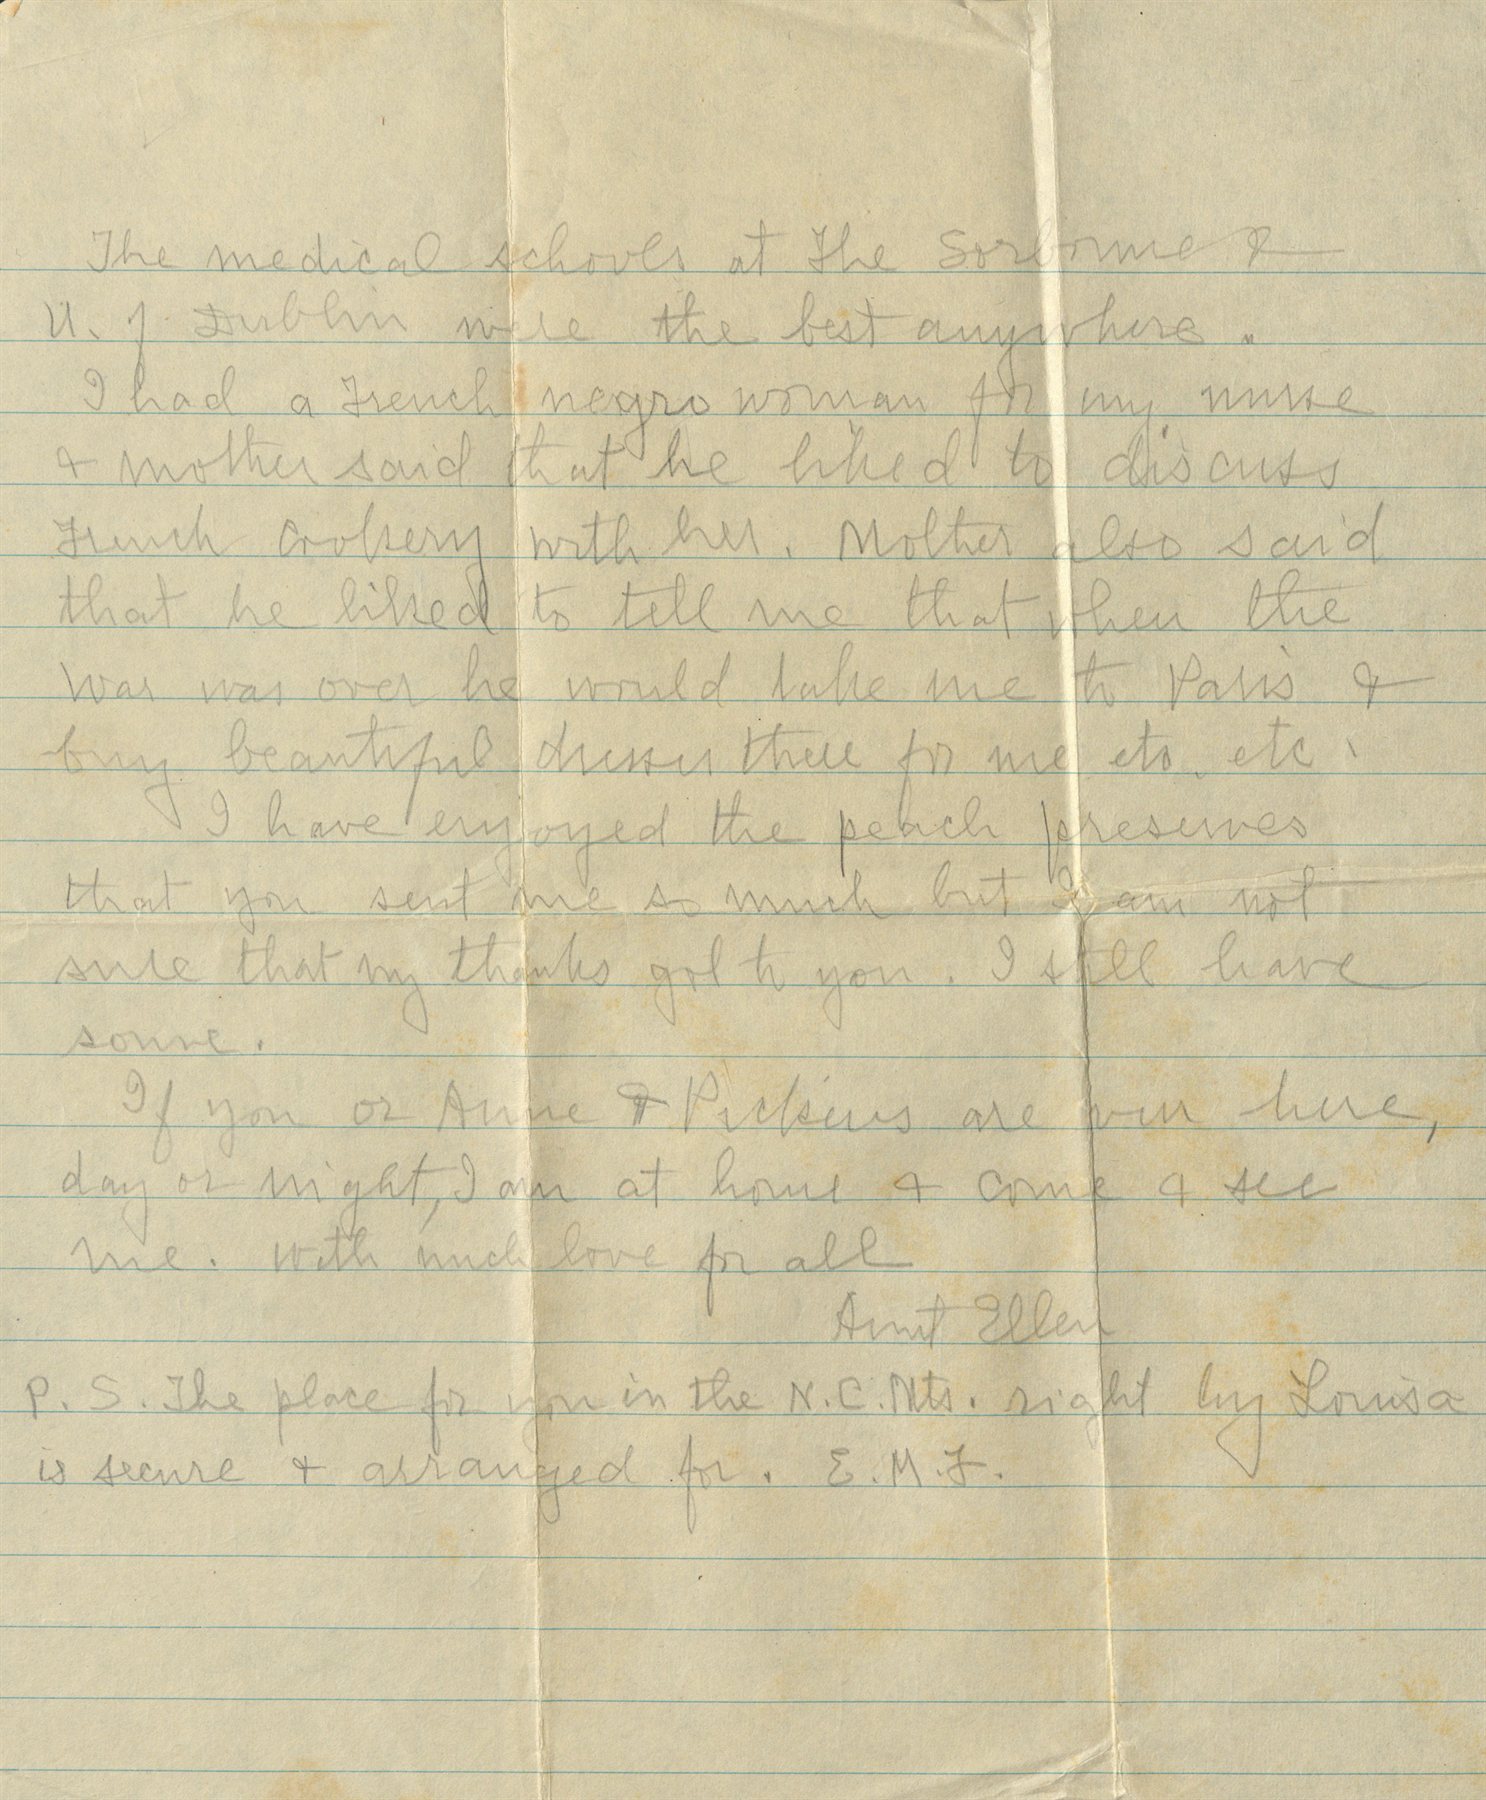 The medical schools at The Sorbonne &
U. of Dublin were the best anywhere.
I had a French negro woman for my nurse
& mother said that he liked to discuss
French Cookery with her. Mother also said
that he liked to tell me that when the
war was over he would take me to Paris &
buy beautiful dresses there for me etc. etc.
I have enjoyed the peach preserves
that you sent me so much but I am not
sure that my thanks got to you. I still have
some.
If you or Anne & Pickens are over here,
day or night, I am at home & come & see
me. With much love for all
Aunt Ellen
P.S. The place for you in the N.C. Mts. right by Louisa
is secure & arranged for. E.M.F.